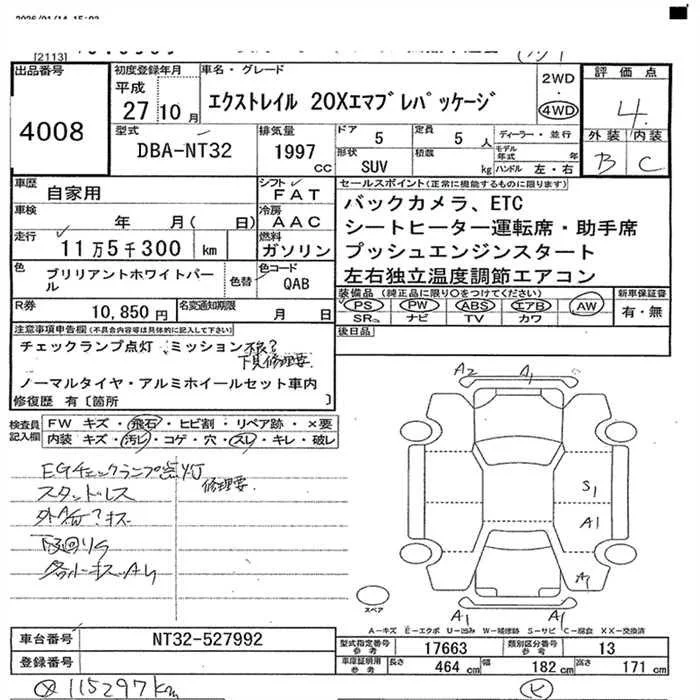 [2113]
出品番号
4008
初度登録年月
平成
27 10 月
車名・グレード
エクストレイル 20Xエマブレパッケージ
2WD
・
4WD
評価点
4.
外装 内装
B C
型式
DBA-NT32
排気量
1997 CC
ドア 5
定員 5 人
形状 SUV
積数 kg
ディーラー・並行
モデル年式 年
ハンドル 左・右
車歴
自家用
シフト
FAT
車検 年 月( 日)
冷房
AAC
走行
11万5千300 km
燃料
ガソリン
色
ブリリアントホワイトパール
色替
色コード
QAB
R券 10,850 円
名変通知期限 月 日
セールスポイント(正常に機能するものに限ります)
バックカメラ、ETC
シートヒーター運転席・助手席
プッシュエンジンスタート
左右独立温度調節エアコン
装備品 (純正品に限り○をつけてください)
PS PW ABS エアB AW
SR ナビ TV カワ
新車保証書
有・無
後日品
注意事項申告欄(不具合内容等は具体的に記入して下さい)
チェックランプ点灯 ミッション不良?
下見修理要
ノーマルタイヤ・アルミホイールセット車内
修復歴 有〔箇所 〕
検査員記入欄
FW キズ・飛石・ヒビ割・リペア跡・×要
内装 キズ・汚レ・コゲ・穴・スレ・キレ・破レ
EGチェックランプ点灯
修理要
スタッドレス
A2 A1
S1
A1
A1
A1 A1
スペア
A－キズ E－エクボ U－凹み W－補修跡 S－サビ C－腐食 XX－交換済
車台番号 NT32-527992
登録番号
型式指定番号 参考 17663
類別区分番号 参考 13
車庫証明用 参考 長さ 464 cm 幅 182 cm 高さ 171 cm
115297km
K